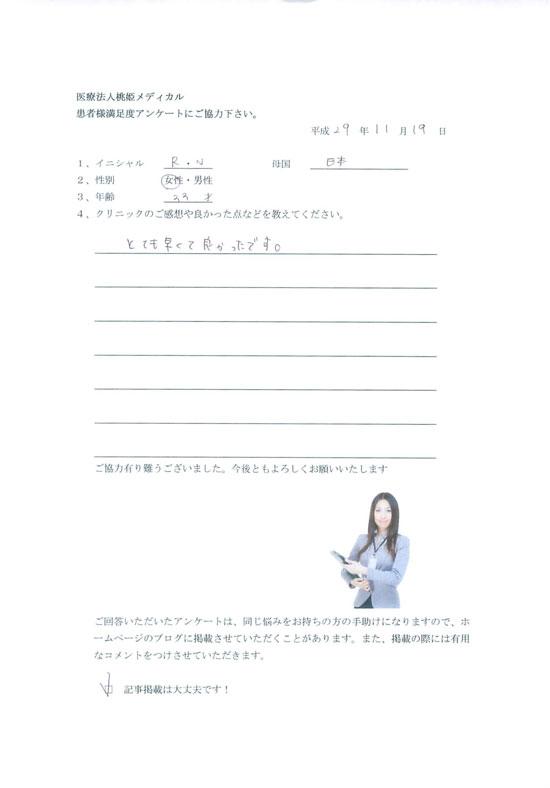 医療法人桃姫メディカル
患者様満足度アンケートにご協力下さい。
平成 29 年 11 月 19 日
1、イニシャル R・N 母国 日本
2、性別 女性・男性
3、年齢 23 才
4、クリニックのご感想や良かった点などを教えてください。
とても早くて良かったです。
ご協力有り難うございました。今後ともよろしくお願いいたします
ご回答いただいたアンケートは、同じ悩みをお持ちの方の手助けになりますので、ホ
ームページのブログに掲載させていただくことがあります。また、掲載の際には有用
なコメントをつけさせていただきます。
記事掲載は大丈夫です！